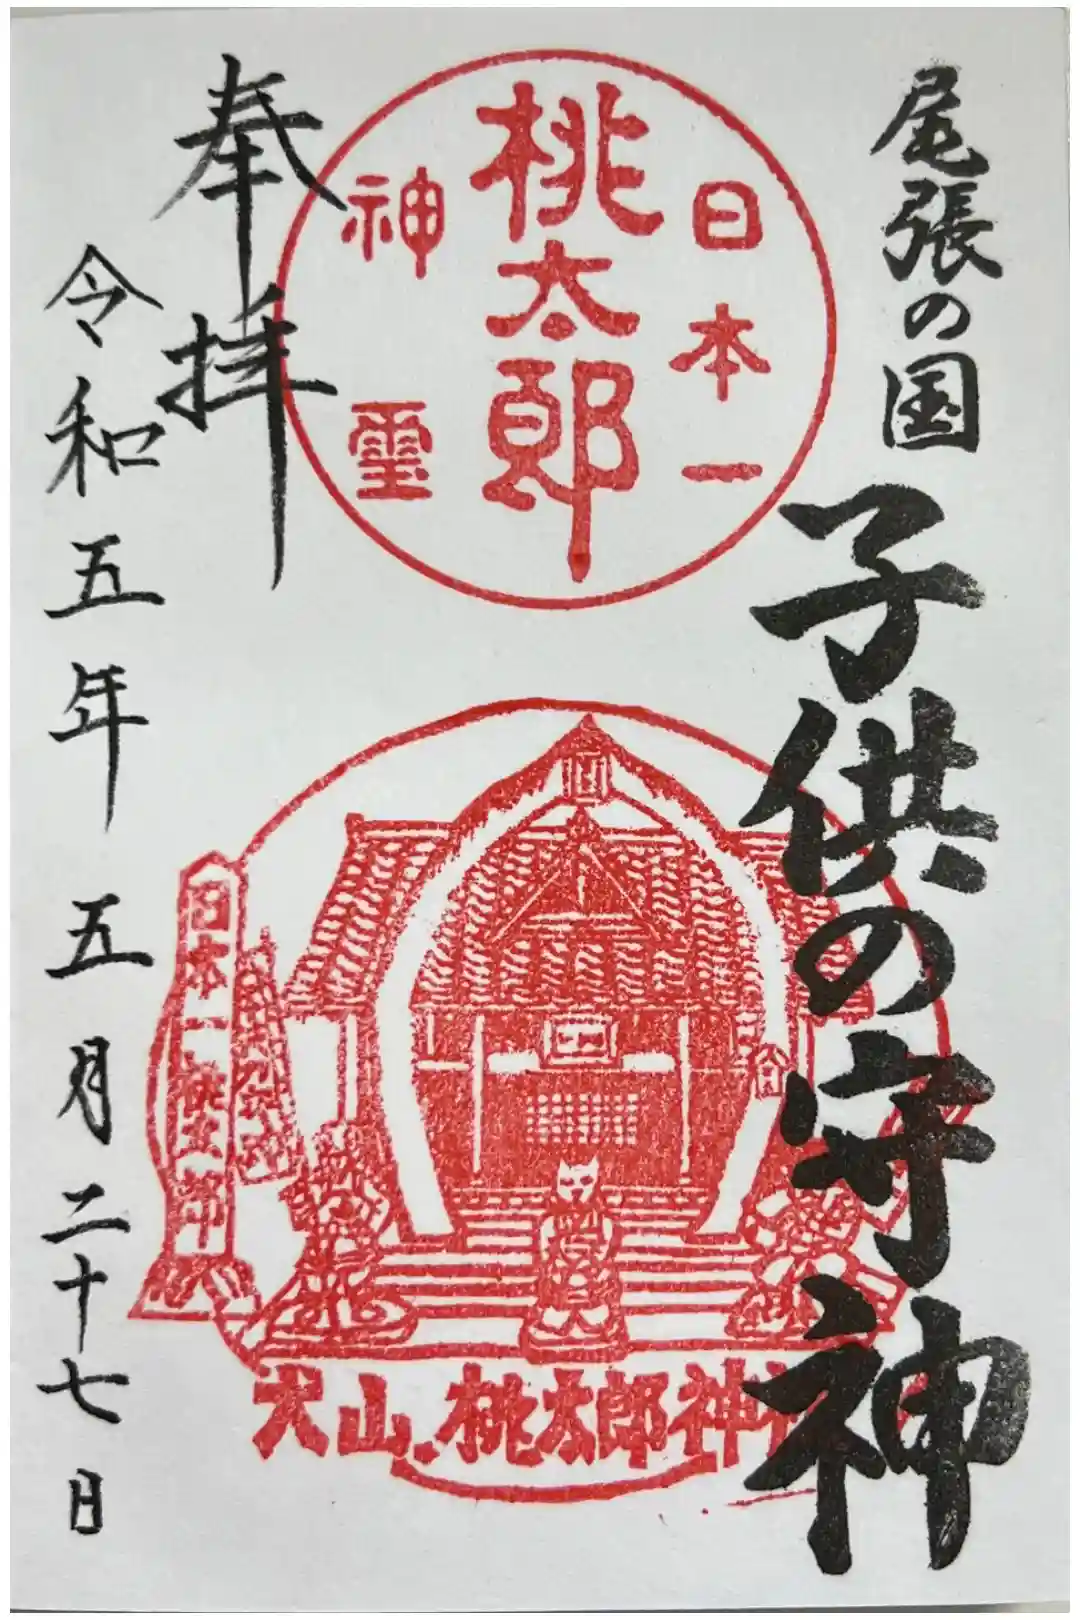 尾張の国
子供の守神
日本一
桃太郎
神霊
奉拝
令和五年 五月二十七日
日本一桃太郎
犬山桃太郎神社